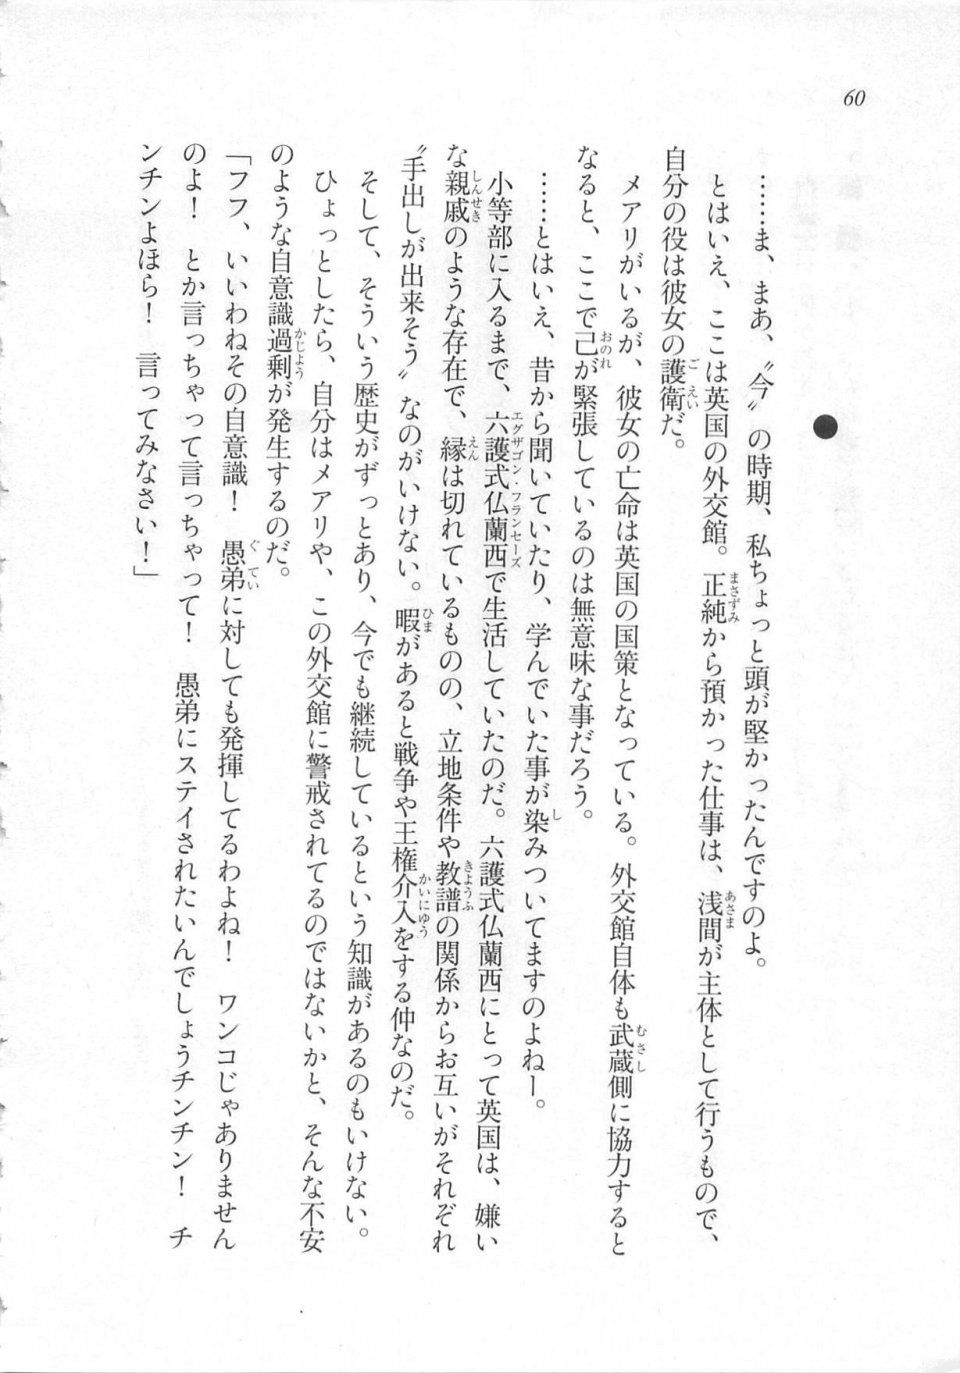 60
●
……ま、まあ、〝今〟の時期、私ちょっと頭が堅かったんですのよ。
とはいえ、ここは英国の外交館。正純から預かった仕事は、浅間が主体として行うもので、
自分の役は彼女の護衛だ。
メアリがいるが、彼女の亡命は英国の国策となっている。外交館自体も武蔵側に協力すると
なると、ここで己が緊張しているのは無意味な事だろう。
……とはいえ、昔から聞いていたり、学んでいた事が染みついてますのよねー。
小等部に入るまで、六護式仏蘭西で生活していたのだ。六護式仏蘭西にとって英国は、嫌い
な親戚のような存在で、縁は切れているものの、立地条件や教譜の関係からお互いがそれぞれ
〝手出しが出来そう〟なのがいけない。暇があると戦争や王権介入をする仲なのだ。
そして、そういう歴史がずっとあり、今でも継続しているという知識があるのもいけない。
ひょっとしたら、自分はメアリや、この外交館に警戒されてるのではないかと、そんな不安
のような自意識過剰が発生するのだ。
「フフ、いいわねその自意識！　愚弟に対しても発揮してるわよね！　ワンコじゃありません
のよ！　とか言っちゃって言っちゃって！　愚弟にステイされたいんでしょうチンチン！　チ
ンチンよほら！　言ってみなさい！」